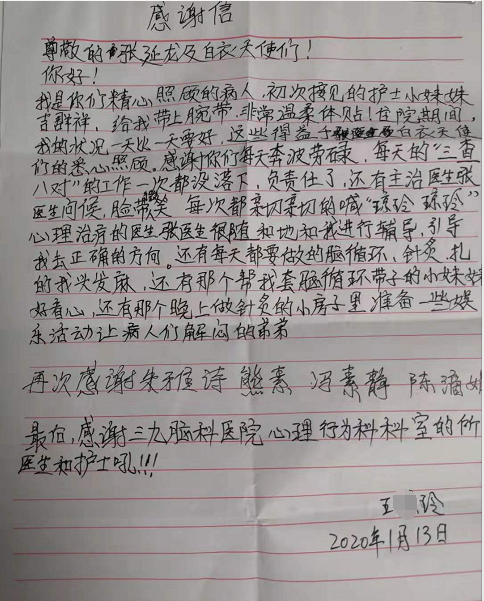 感谢信
尊敬的张延龙及白衣天使们！
你好！
我是你们精心照顾的病人，初次接见的护士小妹妹
吉群祥，给我带上腕带，非常温柔体贴！住院期间，
我的状况一天比一天要好，这些得益于白衣天使
们的悉心照顾。感谢你们每天奔波劳碌，每天的“三查
八对”的工作一次都没落下，负责任了，还有主治医生张
医生问候，脸带微笑，每次都亲切亲切的喊“琼玲 琼玲”
心理治疗的医生张医生很随和地和我进行辅导，引导
我去正确的方向。还有每天都要做的脑循环、针灸，扎
的我头发麻，还有那个帮我套脑循环带子的小妹妹
好看心，还有那个晚上做针灸的小房子里准备一些娱
乐活动让病人们解闷的弟弟
再次感谢 诗 熊素 冯素静 陈
最后，感谢三九脑科医院心理行为科科室的所
医生和护士吼!!!
王 玲
2020年1月13日